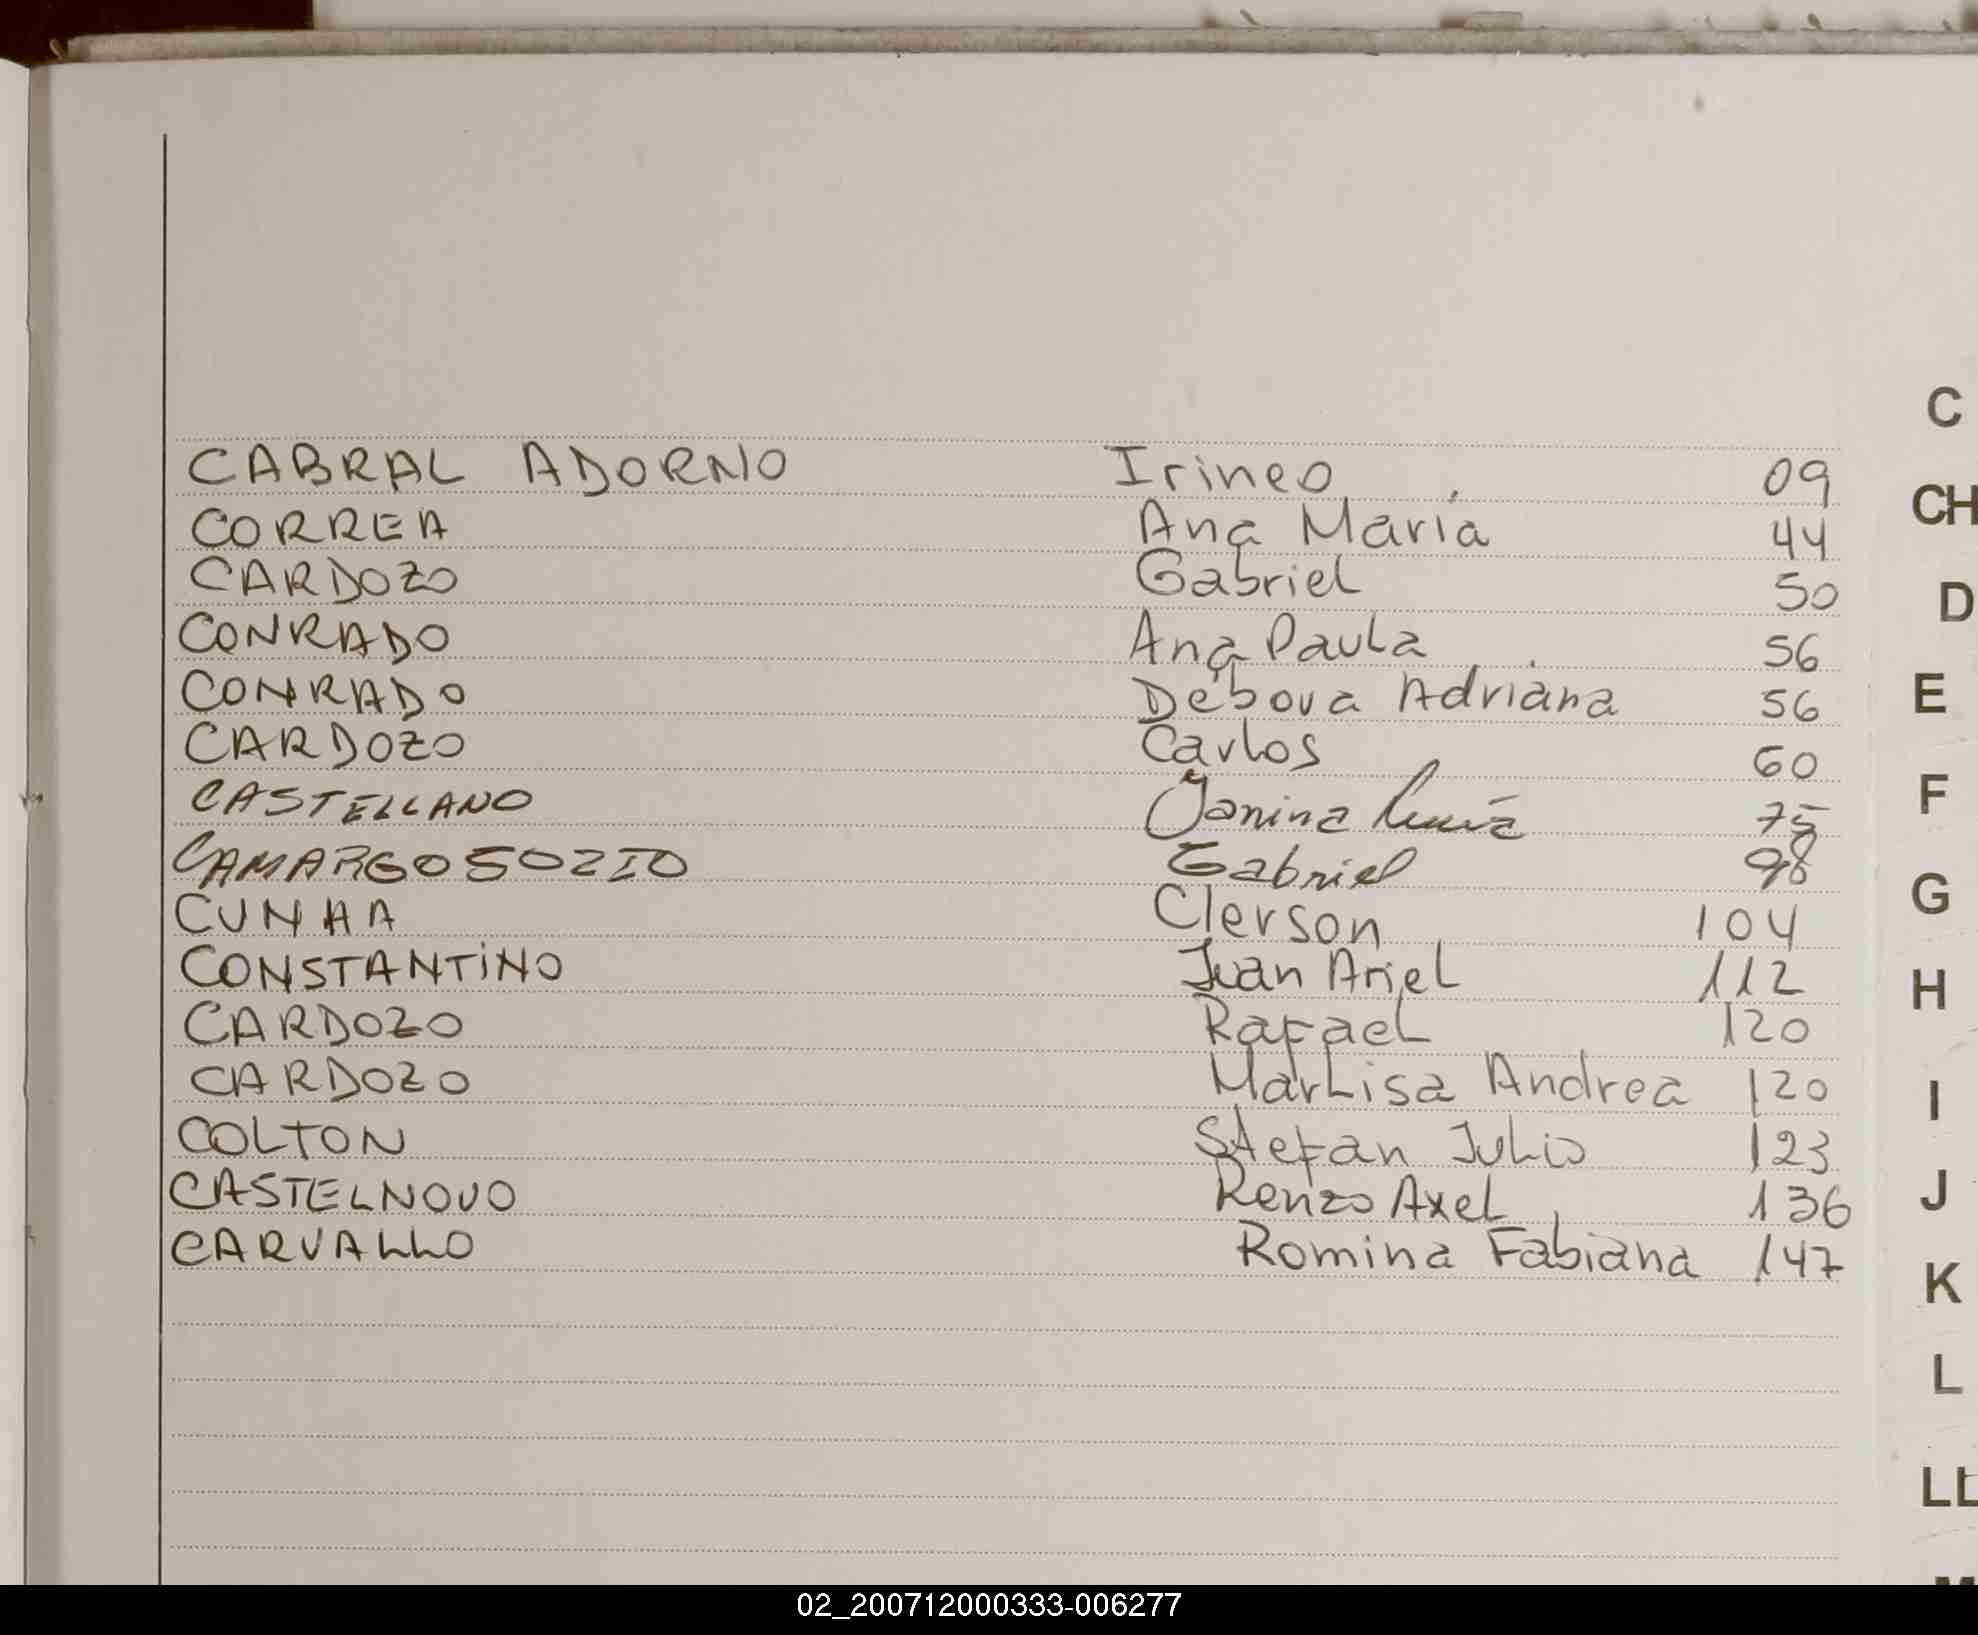 CABRAL ADORNO Irineo 09
CORREA Ana María 44
CARDOZO Gabriel 50
CONRADO Ana Paula 56
CONRADO Débora Adriana 56
CARDOZO Carlos 60
CASTELLANO Janina 75
CAMARGO SOZIO Gabriel 98
CUNHA Clerson 104
CONSTANTINO Juan Ariel 112
CARDOZO Rafael 120
CARDOZO Marlisa Andrea 120
COLTON Stefan Julio 123
CASTELNOVO Renzo Axel 136
CARVALLO Romina Fabiana 147
C
CH
D
E
F
G
H
I
J
K
L
LL
02_200712000333-006277